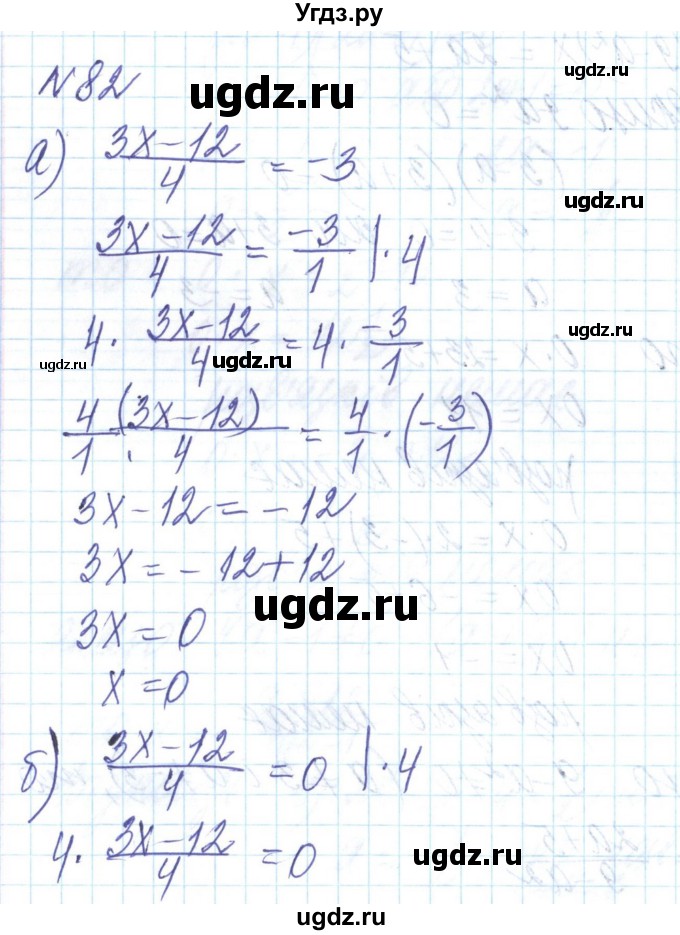 Угдз.ру
N82
ugdz.ru
а) (3x-12)/4 = -3
ugdz.ru
(3x-12)/4 = -3/1 |·4
ugdz.ru
4· (3x-12)/4 = 4· -3/1
ugdz.ru
ugdz.ru
4/1 · (3x-12)/4 = 4/1 · (-3/1)
3x-12=-12
3x=-12+12
ugdz.ru
3x=0
x=0
б) (3x-12)/4 = 0 |·4
ugdz.ru
4· (3x-12)/4 = 0
ugdz.ru
ugdz.ru